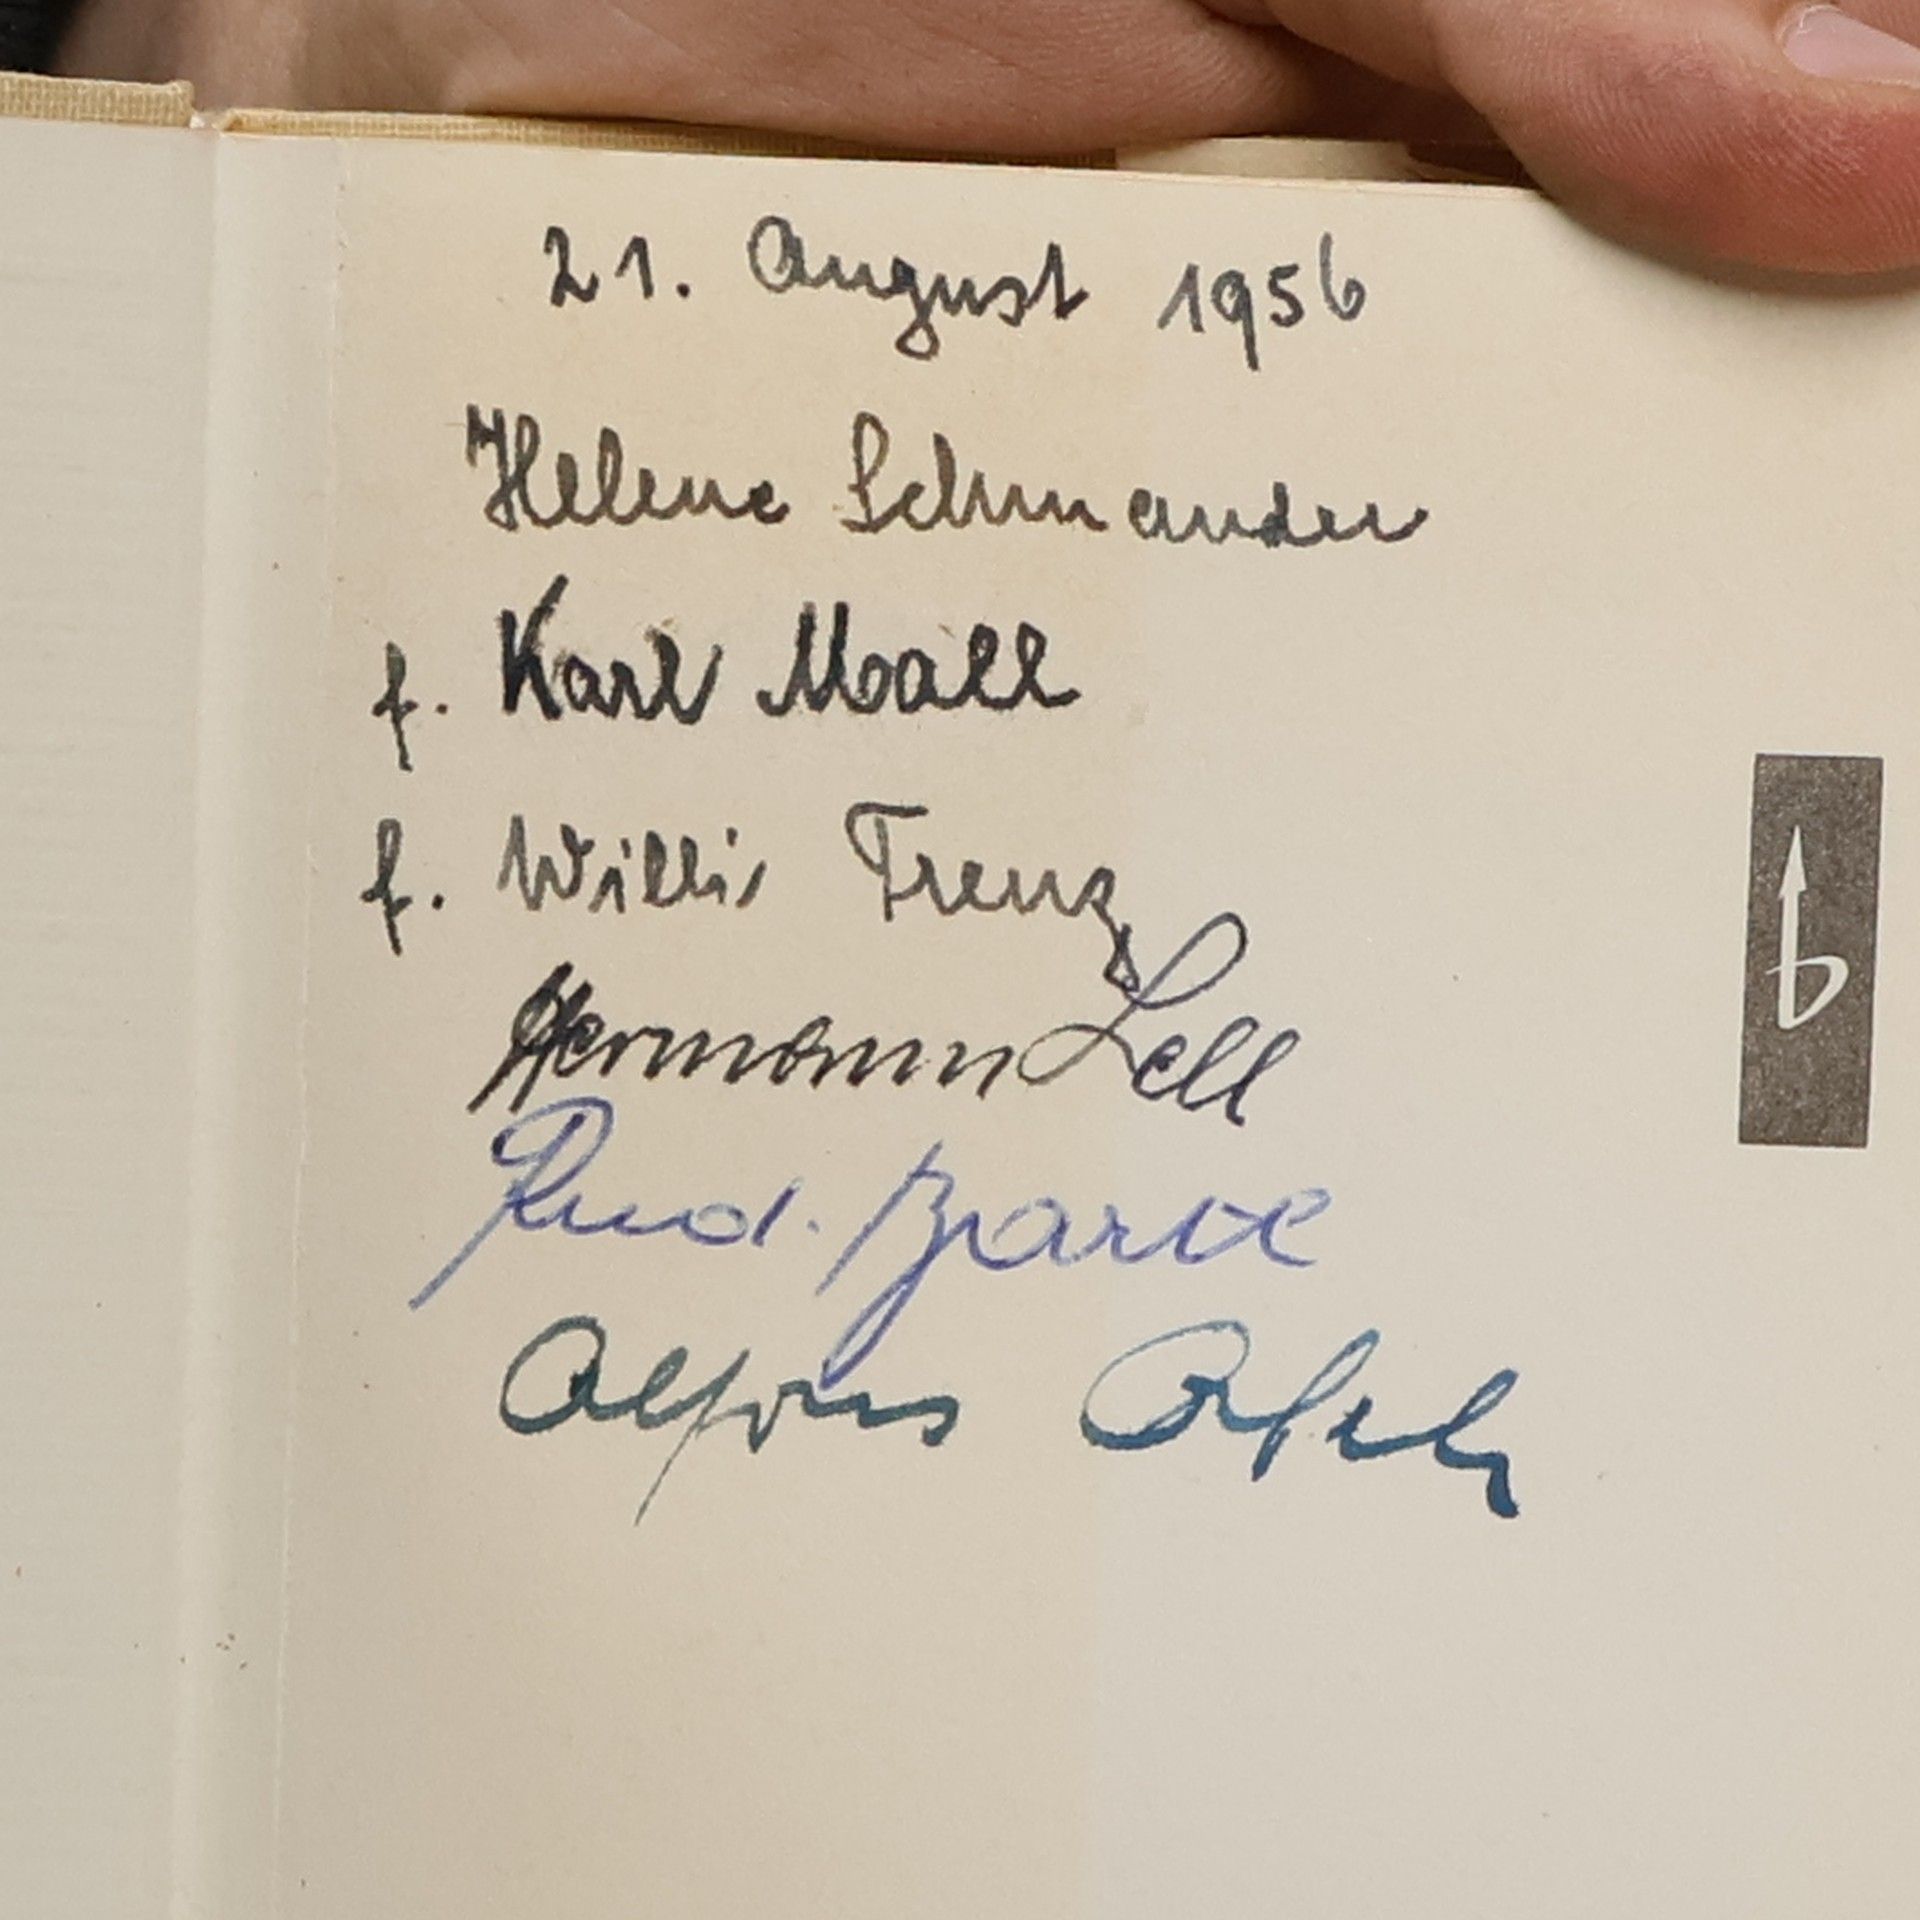 21. August 1956
Helene Schmander
f. Karl Moall
f. Willi Trenz
Hermann Lell
Rud.
Alfons
b